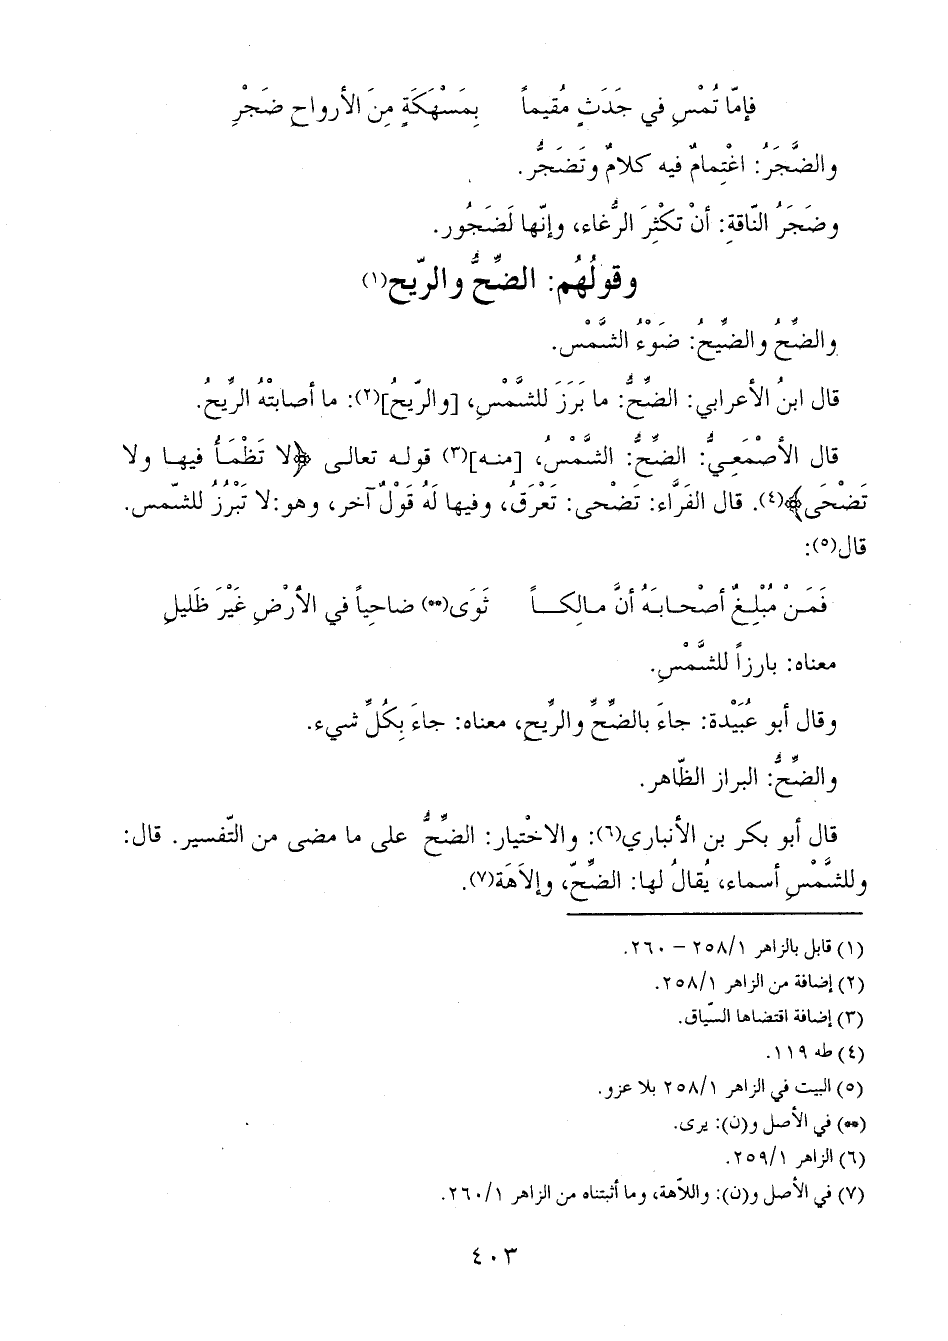 فإمّا تُمْسِ في جَدَثٍ مُقيماً    بِمَسْهَكَةٍ مِنَ الأرواحِ ضَجْرِ
والضَّجَرُ: اغْتِمامٌ فيه كلامٌ وتَضَجُّر.
وضَجَرُ النّاقةِ: أنْ تكْثِرَ الرُّغاء، وإنّها لَضَجُور.
وقولُهُم: الضِّحُّ والرّيح(١)
والضِّحُّ والضِّيحُ: ضَوْءُ الشَّمْس.
قال ابنُ الأعرابي: الضِّحُّ: ما بَرَزَ للشَّمْسِ، [والرّيحُ](٢): ما أصابتْهُ الرِّيحُ.
قال الأصْمَعِيُّ: الضِّحُّ: الشَّمْسُ، [منه](٣) قوله تعالى ﴿لا تَظْمَأُ فيها ولا
تَضْحَى﴾(٤). قال الفَرَّاء: تَضْحى: تَعْرَقُ، وفيها لَهُ قَوْلٌ آخر، وهو: لا تَبْرُزُ للشّمْس.
قال(٥):
فَمَنْ مُبْلِغٌ أصْحابَهُ أنَّ مالِكاً    ثَوَى(**) ضاحِياً في الأرْضِ غَيْرَ ظَليلِ
معناه: بارزاً للشَّمْسِ.
وقال أبو عُبَيْدة: جاءَ بالضِّحِّ والرِّيحِ، معناه: جاءَ بِكُلِّ شيء.
والضِّحُّ: البراز الظّاهر.
قال أبو بكر بن الأنباري(٦): والاخْتيار: الضِّحُّ على ما مضى من التّفسير. قال:
وللشَّمْسِ أسماء، يُقالُ لها: الضِّحّ، وإلاَهَة(٧).
(١) قابل بالزاهر ٢٥٨/١ – ٢٦٠.
(٢) إضافة من الزاهر ٢٥٨/١.
(٣) إضافة اقتضاها السّياق.
(٤) طه ١١٩.
(٥) البيت في الزاهر ٢٥٨/١ بلا عزو.
(**) في الأصل و(ن): يرى.
(٦) الزاهر ٢٥٩/١.
(٧) في الأصل و(ن): واللاّهة، وما أثبتناه من الزاهر ٢٦٠/١.
٤٠٣